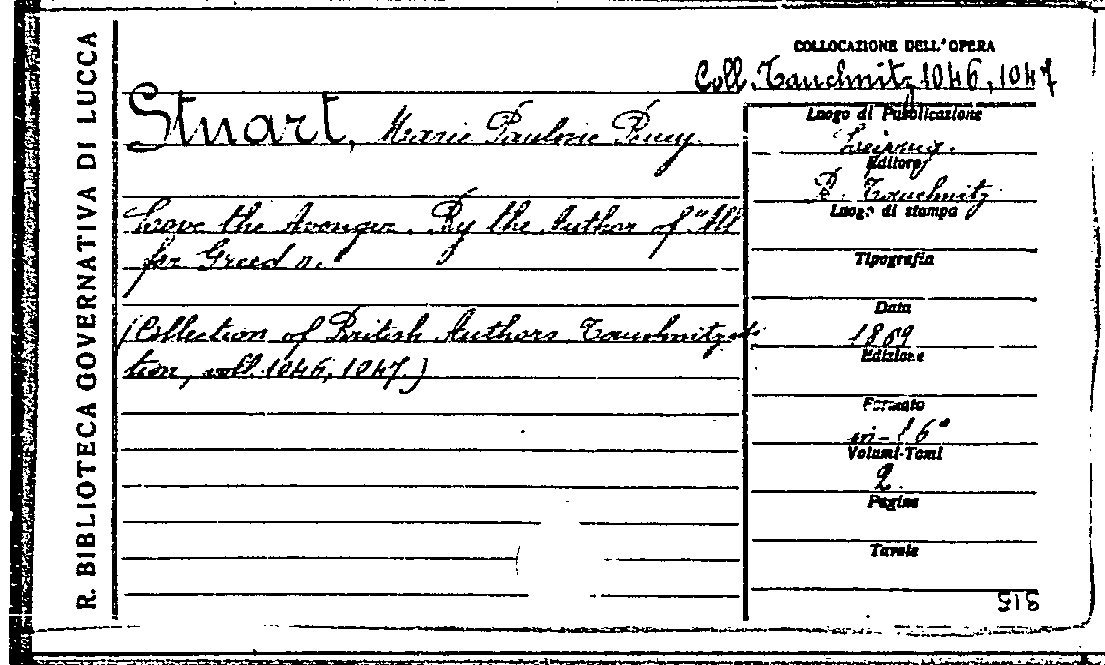 R. BIBLIOTECA GOVERNATIVA DI LUCCA
COLLOCAZIONE DELL'OPERA
Coll. Tauchnitz 1046, 1047
Stuart, Marie Pauline
Love the Avenger. By the Author of "All
for Greed".
(Collection of British Authors Tauchnitz edi
tion, voll. 1046, 1047.)
Luogo di Pubblicazione
Leipzig.
Editore
B. Tauchnitz
Luogo di stampa
Tipografia
Data
1869
Edizione
Formato
in-16°
Volumi-Tomi
2.
Pagine
Tavole
515